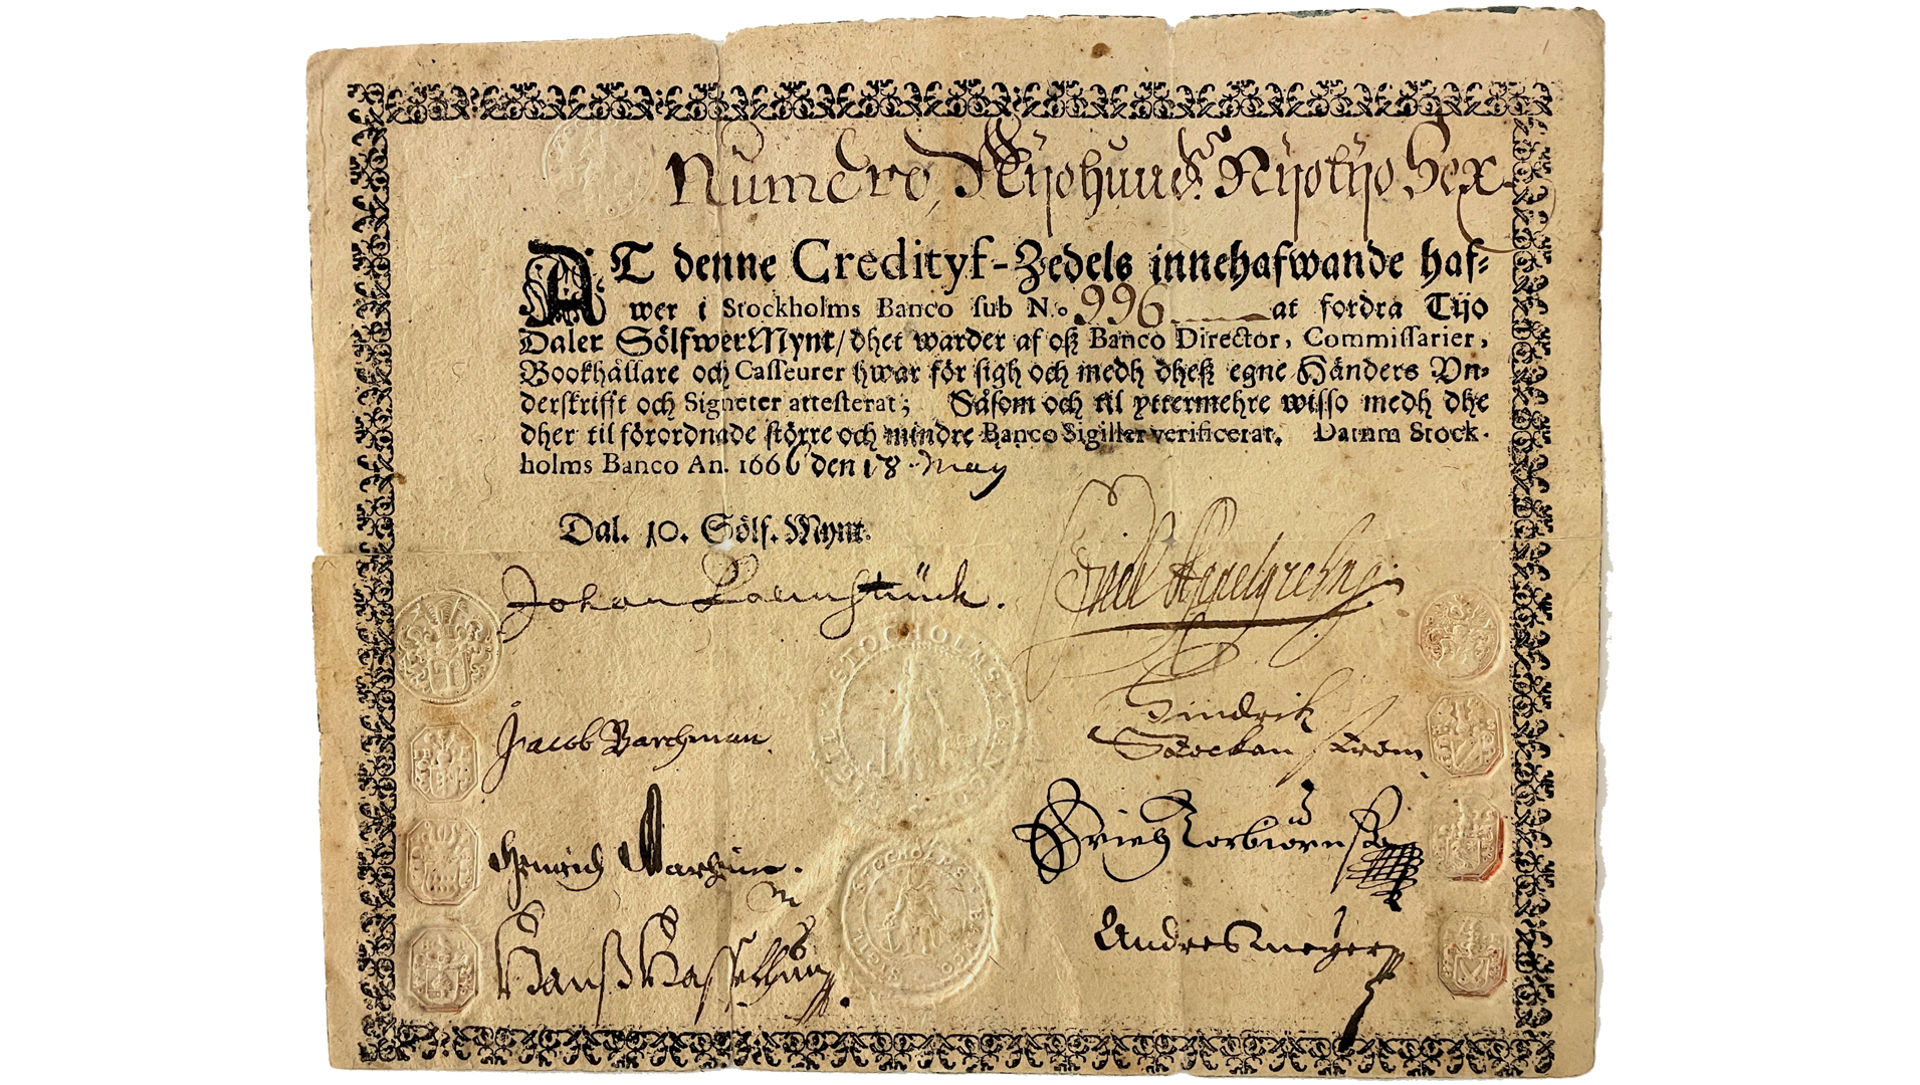 Numero, Nijohund. Nijotijo Sex
AT denne Credityf-Zedels innehafwande haf-
wer i Stockholms Banco sub N.o 996 at fordra Tijo
Daler SölfwerMynt/dhet warder af oß Banco Director, Commissarier,
Bookhållare och Casseurer hwar för sigh och medh dheß egne Händers Vn-
derskrifft och Signeter attesterat; Såsom och til yttermehre wisso medh dhe
dher til förordnade större och mindre Banco Sigiller verificerat. Datum Stock-
holms Banco An. 1666 den 18 May
Dal. 10. Sölf. Mynt.
Johan
STOCHOLMS
Jacob Barchman
Hindrik
Stockenström
Hinrich
STOCHOLMS BANCO SIGIL
Andres meyer